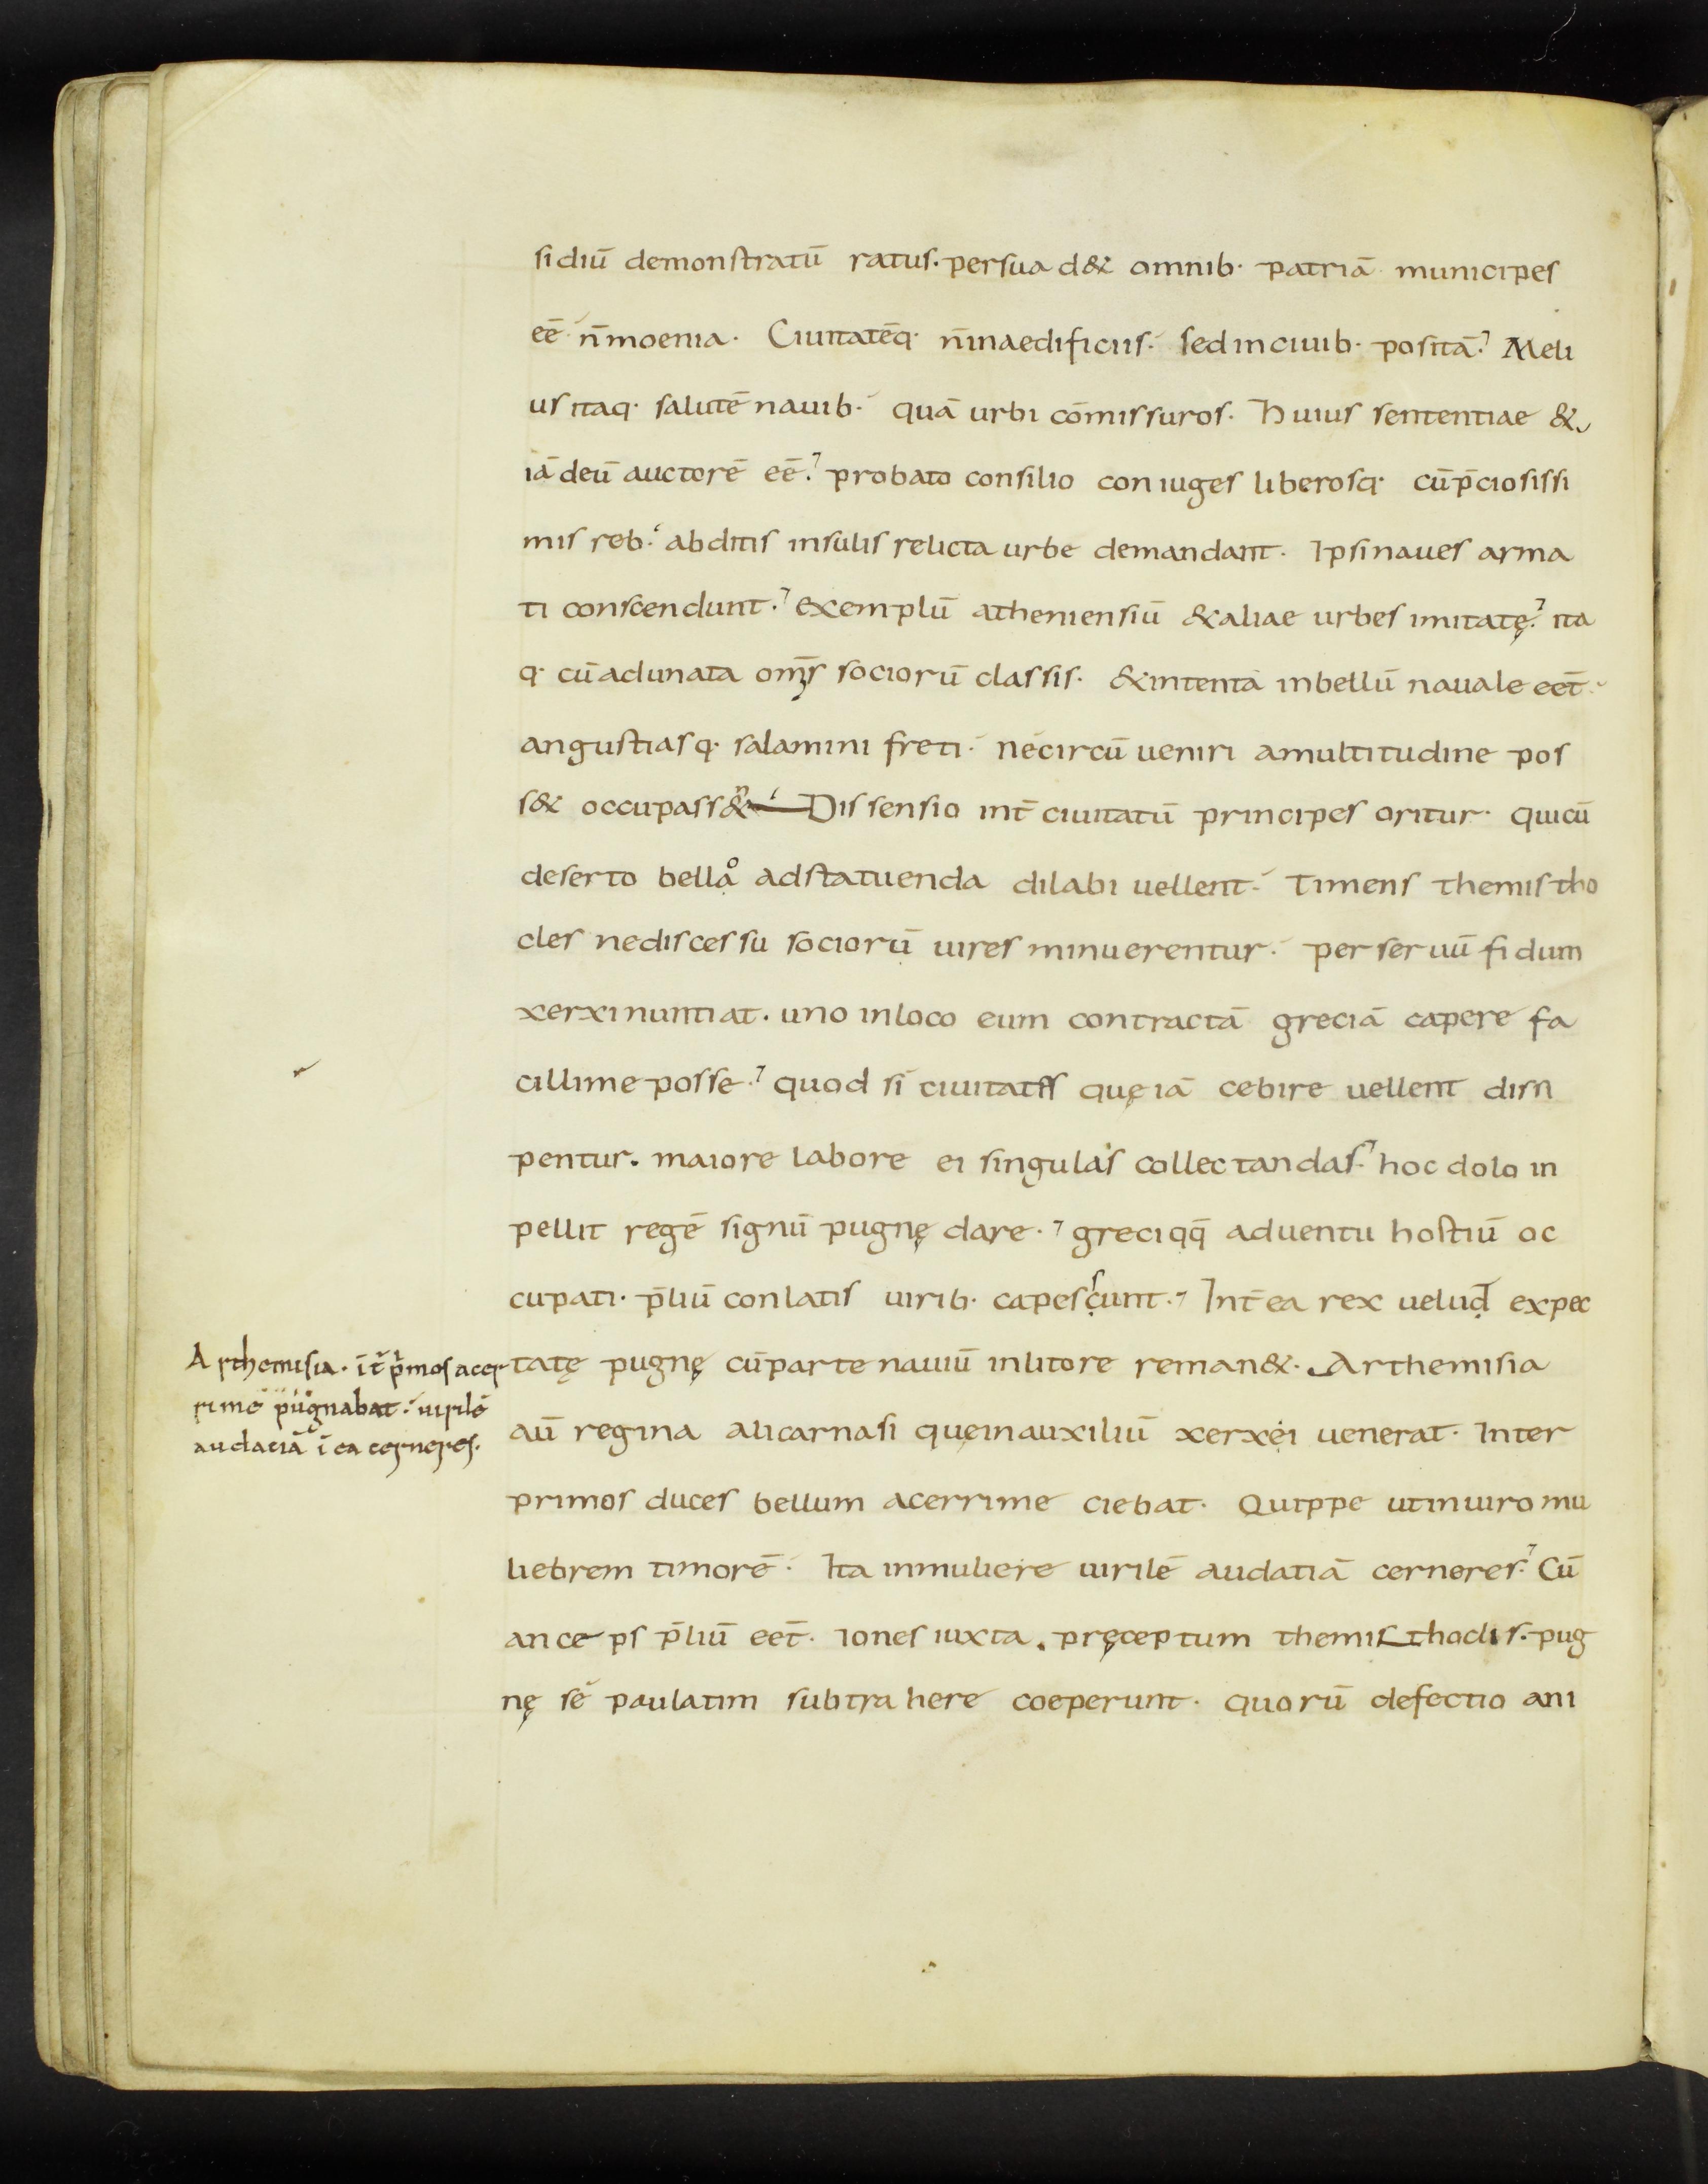 sidiū demonstratū ratus. persuad& omnib· patriā municipes
eē n̄ moenia. Ciuitatēq· n̄ inaedificiis. sed inciuib· positā. Meli
us itaq· salutē nauib· quā urbi cōmissuros. Huius sententiae &
iā deū auctorē eē. probato consilio coniuges liberosq· cū p̄ciosissi
mis reb· abditis insulis relicta urbe demandant. Ipsi naues arma
ti conscendunt. exemplū atheniensiū & aliae urbes imitatę. ita
q· cū adunata om̄s sociorū classis. & intenta inbellū nauale eēt.
angustiasq· salamini freti. necircū ueniri amultitudine pos
s& occupass&. Dissensio int̄ ciuitatū principes oritur. quicū
deserto bellå adstatuenda dilabi uellent. Timens themistho
cles nediscessu sociorū uires minuerentur. per seruū fidum
xerxi nuntiat. uno inloco eum contractā greciā capere fa
cillime posse. quod si ciuitates quę iā cebire uellent dissi
pentur. maiore labore ei singulas collectandas. hoc dolo in
pellit regē signū pugnę dare. greci qq̄ aduentu hostiū oc
cupati. p̄liū conlatis uirib· capescunt. Int̄ea rex uelud expec
tatę pugnę cū parte nauiū inlitore reman&. Arthemisia
aū regina alicarnasi quę inauxiliū xerxei uenerat. Inter
primos duces bellum acerrime ciebat. Quippe utinuiro mu
liebrem timorē. Ita inmuliere uirilē audatiā cerneres. Cū
anceps p̄liū eēt. iones iuxta. pręceptum themisthoclis. pug
nę sē paulatim subtrahere coeperunt. quorū defectio ani
Arthemisia. īt̄ p̄mos acer
rime pugnabat. uirilē
audaciā ī ea cerneres.